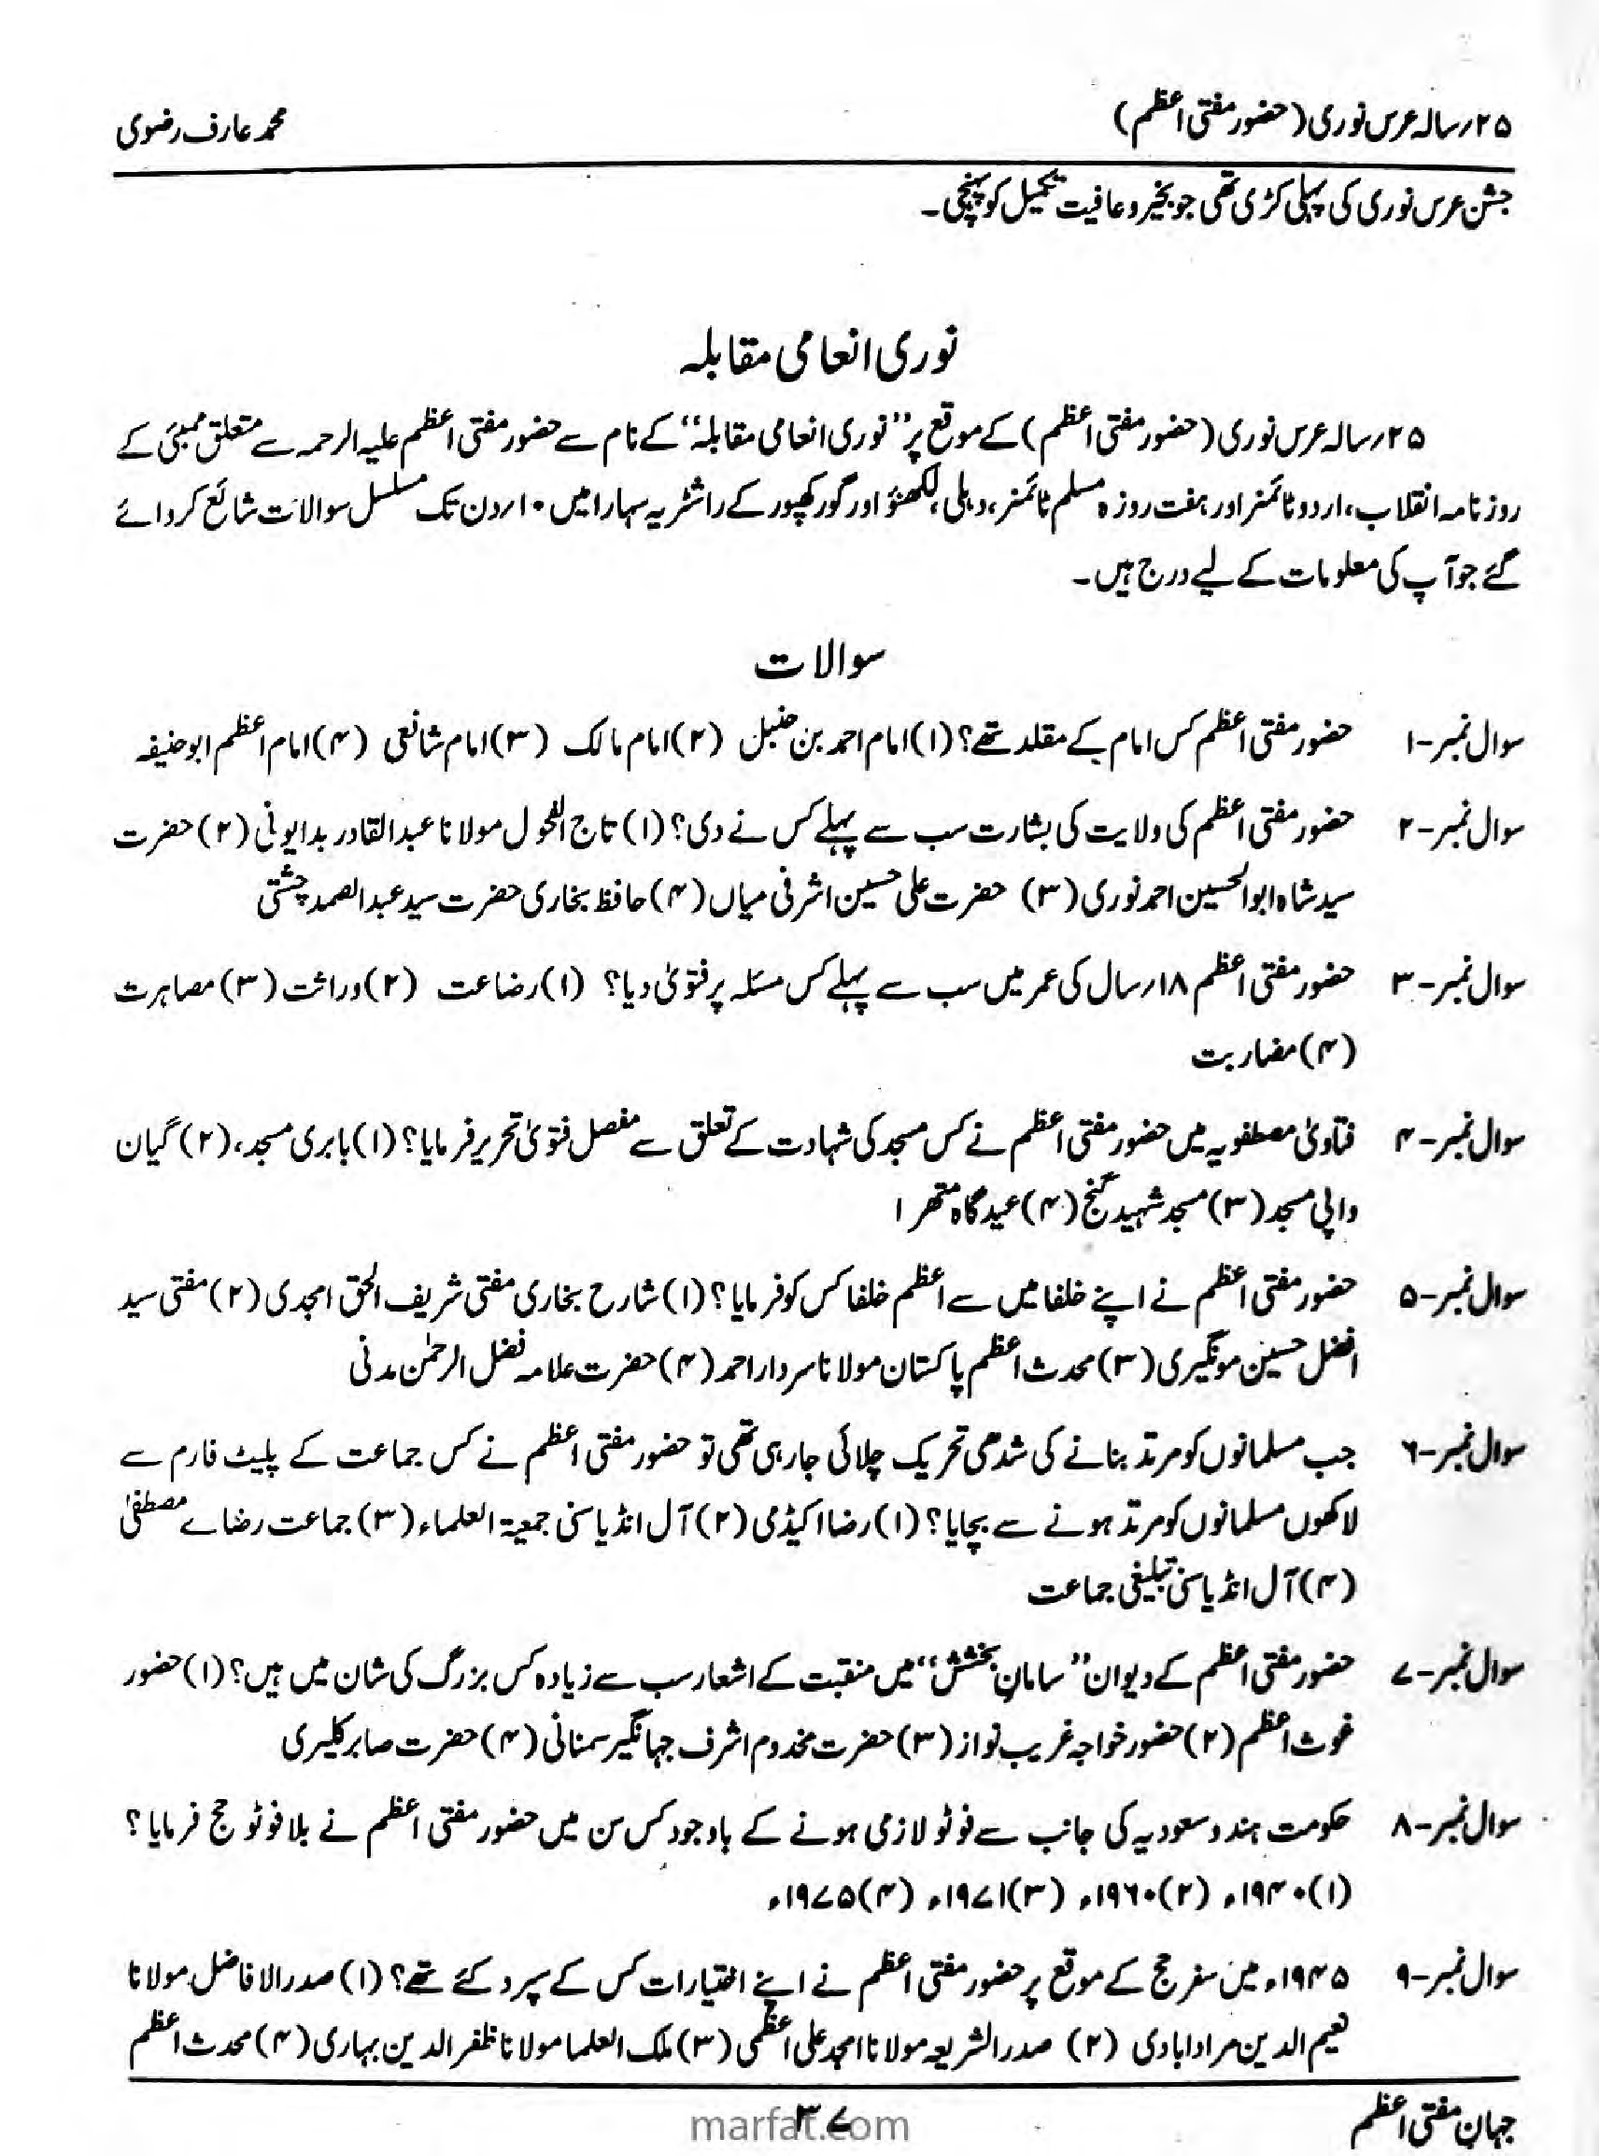 ۲۵؍رسالہ عرس نوری (حضور مفتی اعظم)
محمد عارف رضوی
جشن عرس نوری کی پہلی کڑی تھی جو بخیر و عافیت تکمیل کو پہنچی۔
نوری انعامی مقابلہ
۲۵؍رسالہ عرس نوری (حضور مفتی اعظم) کے موقع پر ”نوری انعامی مقابلہ“ کے نام سے حضور مفتی اعظم علیہ الرحمہ سے متعلق ممبئی کے
روزنامہ انقلاب، اردو ٹائمز اور ہفت روزہ مسلم ٹائمنر، دہلی، لکھنؤ اور گورکھپور کے راشٹریہ سہارا میں ۱۰؍دن تک مسلسل سوالات شائع کروائے
گئے جو آپ کی معلومات کے لیے درج ہیں۔
سوالات
سوال نمبر-۱ حضور مفتی اعظم کس امام کے مقلد تھے؟ (۱) امام احمد بن حنبل (۲) امام مالک (۳) امام شافعی (۴) امام اعظم ابوحنیفہ
سوال نمبر-۲ حضور مفتی اعظم کی ولایت کی بشارت سب سے پہلے کس نے دی؟ (۱) تاج الفحول مولانا عبدالقادر بدایونی (۲) حضرت
سید شاہ ابوالحسین احمد نوری (۳) حضرت علی حسین اشرفی میاں (۴) حافظ بخاری حضرت سید عبدالصمد چشتی
سوال نمبر-۳ حضور مفتی اعظم ۱۸؍سال کی عمر میں سب سے پہلے کس مسئلہ پر فتویٰ دیا؟ (۱) رضاعت (۲) وراثت (۳) مصاہرت
(۴) مضاربت
سوال نمبر-۴ فتاویٰ مصطفویہ میں حضور مفتی اعظم نے کس مسجد کی شہادت کے تعلق سے مفصل فتویٰ تحریر فرمایا؟ (۱) بابری مسجد، (۲) گیان
واپی مسجد (۳) مسجد شہید گنج (۴) عید گاہ متھرا
سوال نمبر-۵ حضور مفتی اعظم نے اپنے خلفا میں سے اعظم خلفا کس کو فرمایا؟ (۱) شارح بخاری مفتی شریف الحق امجدی (۲) مفتی سید
افضل حسین مونگیری (۳) محدث اعظم پاکستان مولانا سردار احمد (۴) حضرت علامہ فضل الرحمٰن مدنی
سوال نمبر-۶ جب مسلمانوں کو مرتد بنانے کی شدھی تحریک چلائی جارہی تھی تو حضور مفتی اعظم نے کس جماعت کے پلیٹ فارم سے
لاکھوں مسلمانوں کو مرتد ہونے سے بچایا؟ (۱) رضا اکیڈمی (۲) آل انڈیا سنی جمعیۃ العلماء (۳) جماعت رضاے مصطفیٰ
(۴) آل انڈیا سنی تبلیغی جماعت
سوال نمبر-۷ حضور مفتی اعظم کے دیوان ”سامانِ بخشش“ میں منقبت کے اشعار سب سے زیادہ کس بزرگ کی شان میں ہیں؟ (۱) حضور
غوث اعظم (۲) حضور خواجہ غریب نواز (۳) حضرت مخدوم اشرف جہانگیر سمنانی (۴) حضرت صابر کلیری
سوال نمبر-۸ حکومت ہند و سعودیہ کی جانب سے فوٹو لازمی ہونے کے باوجود کس سن میں حضور مفتی اعظم نے بلا فوٹو حج فرمایا؟
(۱) ۱۹۴۰ء (۲) ۱۹۶۰ء (۳) ۱۹۷۱ء (۴) ۱۹۷۵ء
سوال نمبر-۹ ۱۹۴۵ء میں سفر حج کے موقع پر حضور مفتی اعظم نے اپنے اختیارات کس کے سپرد کئے تھے؟ (۱) صدر الافاضل مولانا
نعیم الدین مراداباوی (۲) صدر الشریعہ مولانا امجد علی اعظمی (۳) ملک العلما مولانا ظفر الدین بہاری (۴) محدث اعظم
جہانِ مفتی اعظم
۳۷
marfat.com